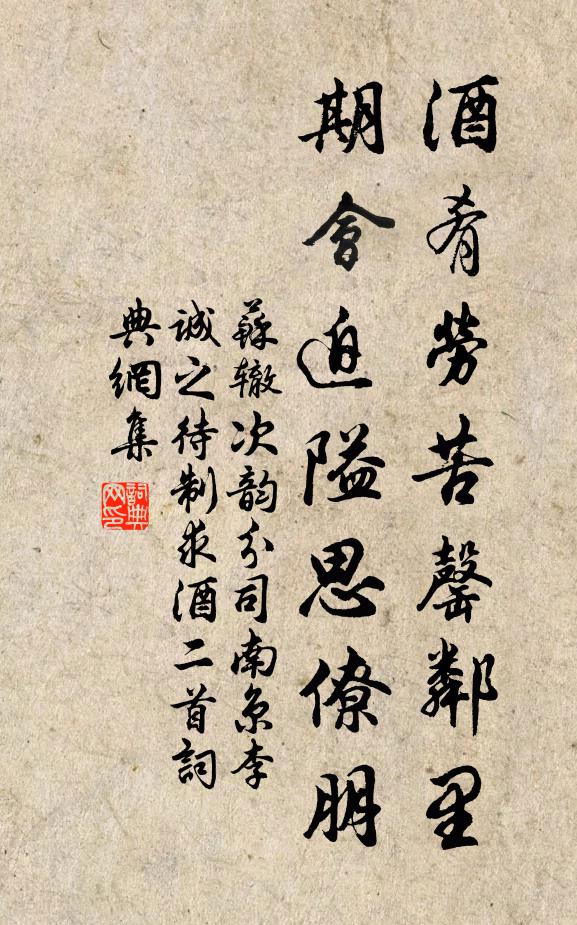 酒肴勞苦罄鄰里
期會迫隘思僚朋
蘇轍次韵分司南京李
誠之待制求酒二首詞
典網集
詞典
网印